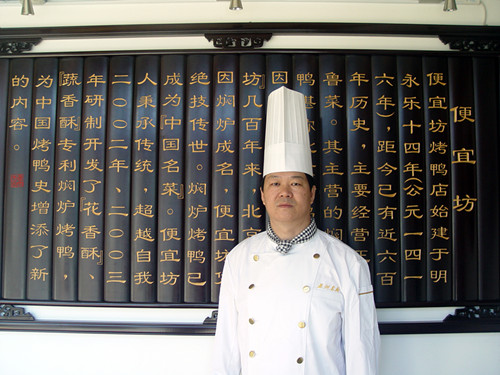 便宜坊
便宜坊烤鸭店始建于明
永乐十四年(公元一四一
六年)，距今已有近六百
年历史，主要经营正
鲁菜。其主营的焖
鸭堪称北
因
坊』几百年来，北京
因焖炉成名，便宜坊
绝技传世。焖炉烤鸭已
成为『中国名菜』。便宜坊
人秉承传统，超越自我
二〇〇二年、二〇〇三
年研制开发了『花香酥』、『
蔬香酥』专利焖炉烤鸭，
为中国烤鸭史增添了新
的内容。